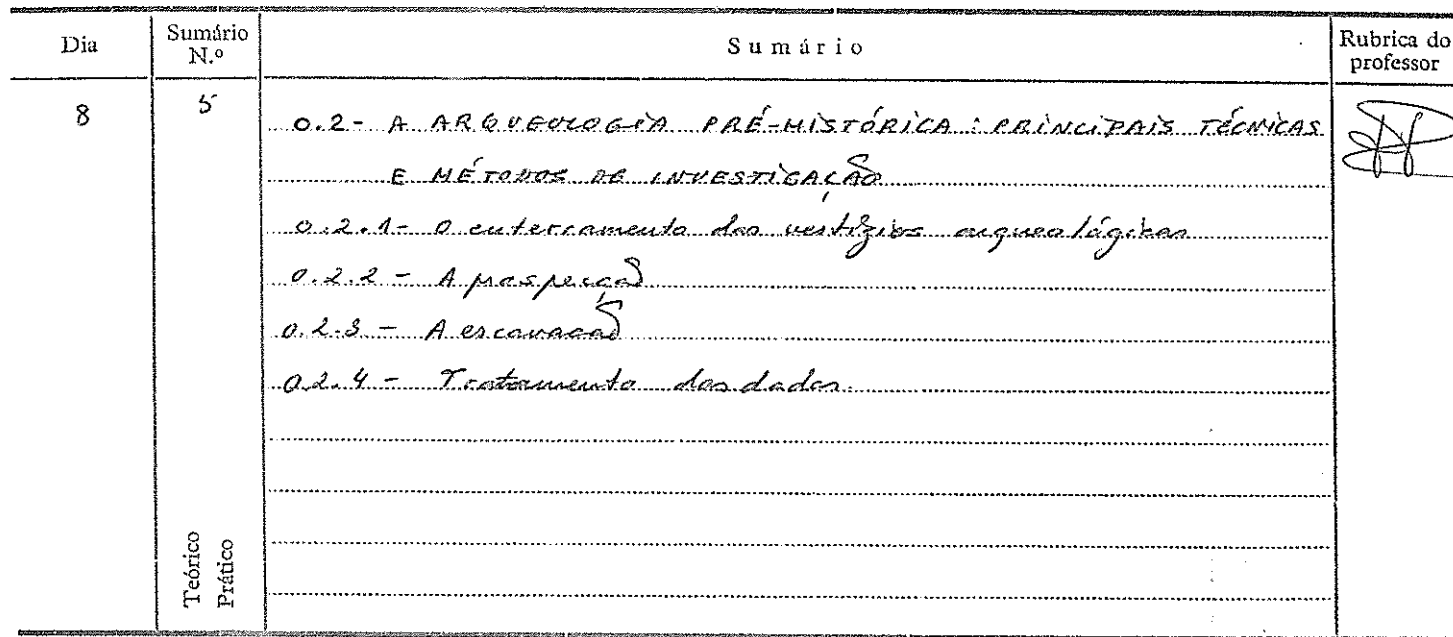 Dia
Sumário N.º
Sumário
Rubrica do professor
8
5
0.2- A ARQUEOLOGIA PRÉ-HISTÓRICA: PRINCIPAIS TÉCNICAS
E MÉTODOS DE INVESTIGAÇÃO
0.2.1- O enterramento dos vestígios arqueológicos
0.2.2- A prospecção
0.2.3- A escavação
0.2.4- Tratamento dos dados.
Teórico
Prático